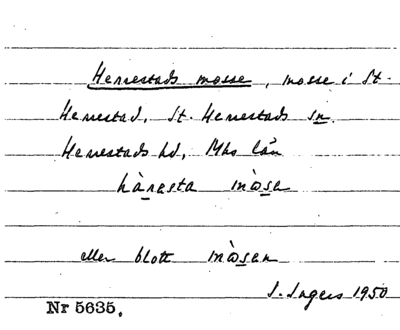 Herrestads mosse, mosse i St.
Herrestad, St. Herrestads sn.
Herrestads hd, Mhs län
hàresta mòsa
eller blott mòsen
I. Ingers 1950
Nr 5635.